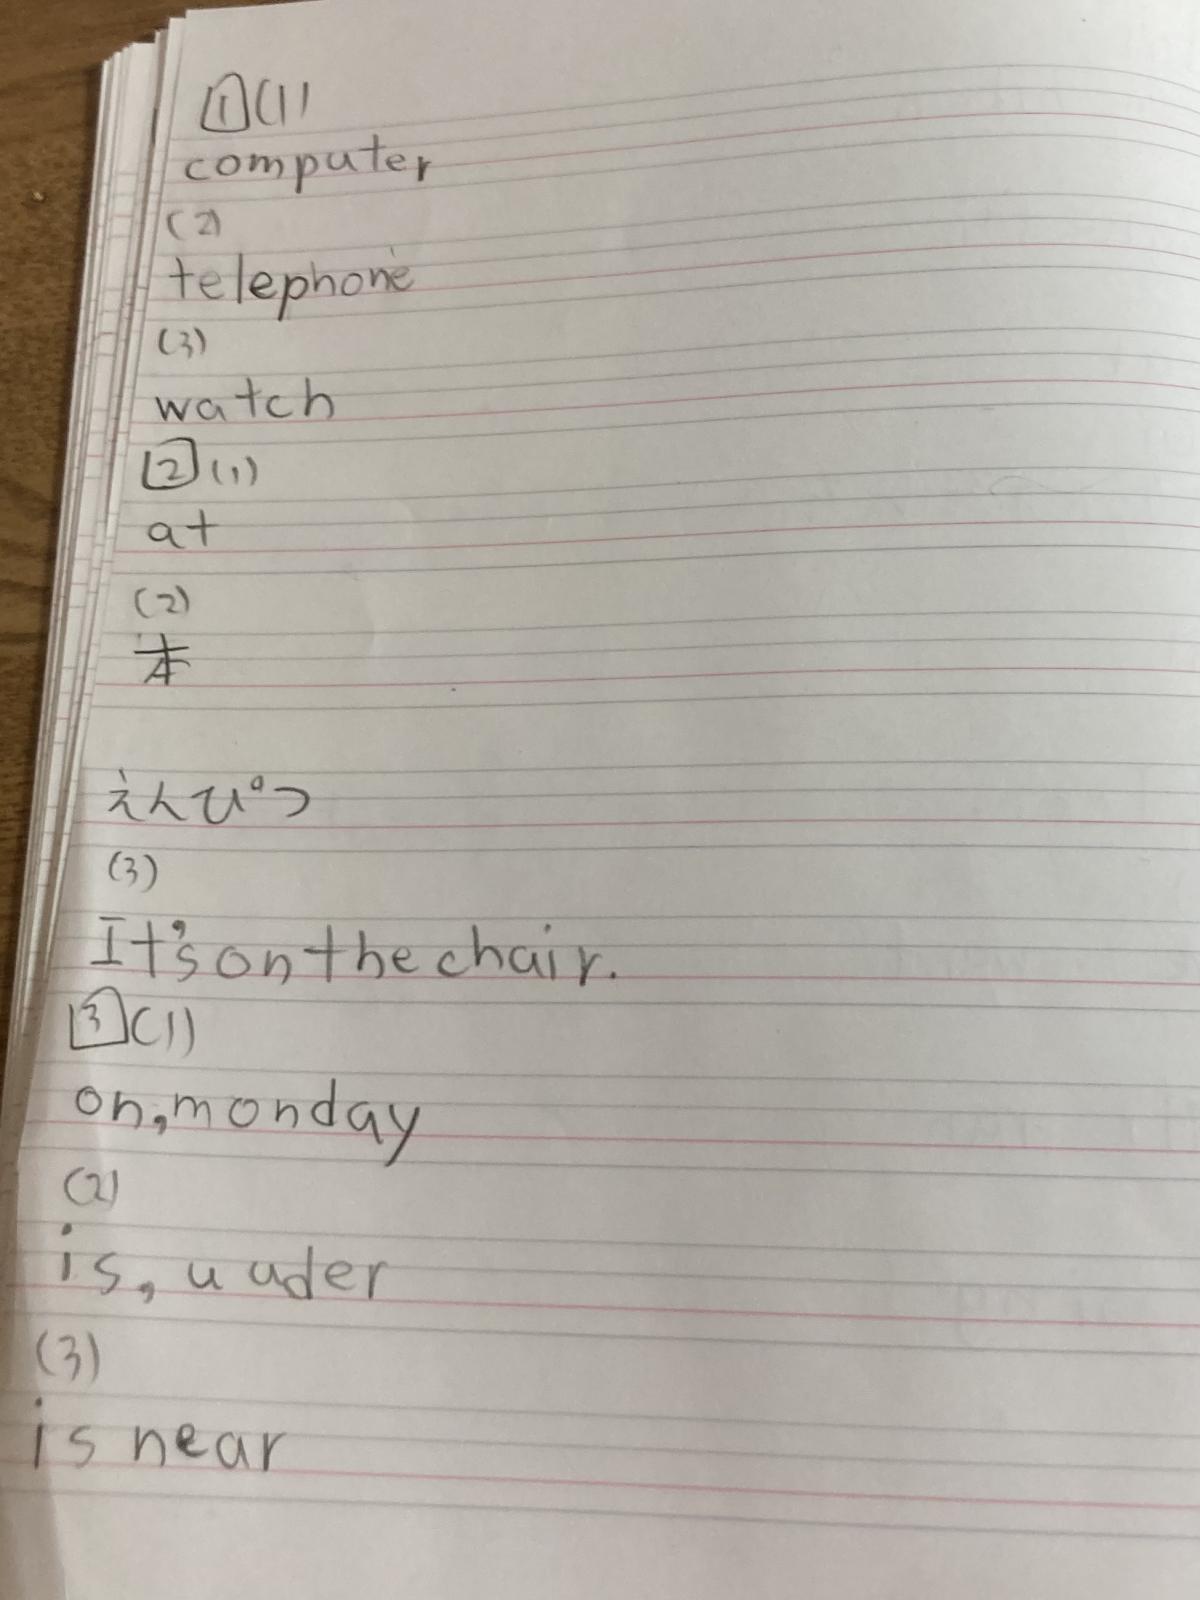 1 (1)
computer
(2)
telephone
(3)
watch
2 (1)
at
(2)
本
えんぴつ
(3)
It's on the chair.
3 (1)
on, monday
(2)
is, uuder
(3)
is near